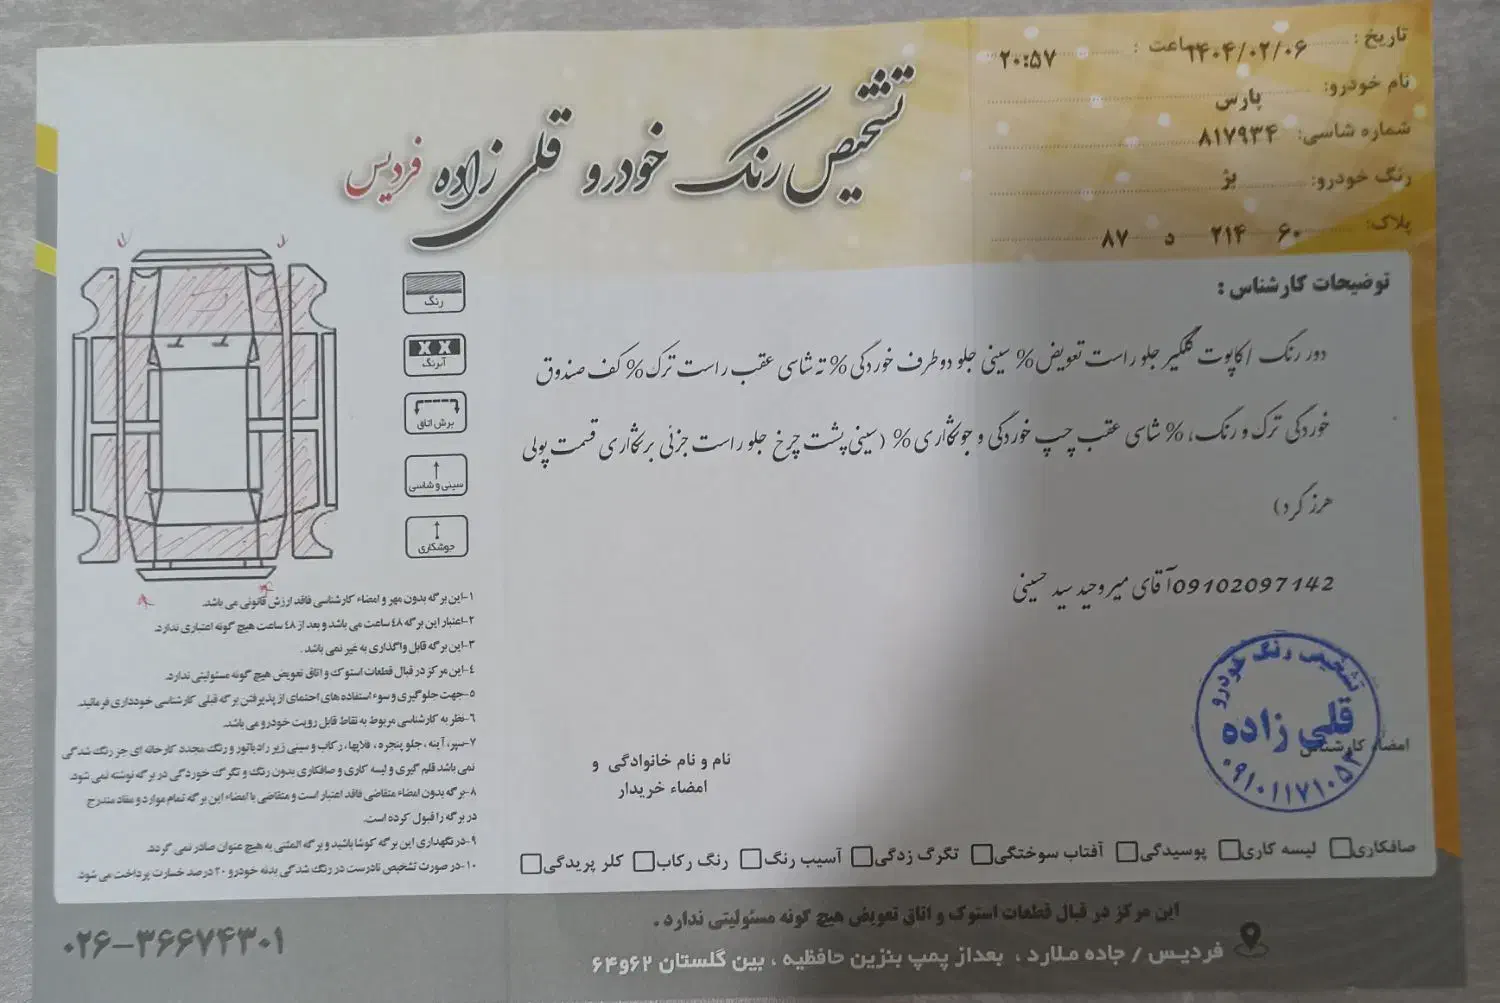 تشخیص رنگ خودرو قلی زاده فردیس
تاریخ: ۱۴۰۴/۰۲/۰۶ ساعت: ۲۰:۵۷
نام خودرو: پارس
شماره شاسی: ۸۱۷۹۳۴
رنگ خودرو: بژ
پلاک: ۶۰ ۲۱۴ د ۸۷
رنگ
X X
آبرنگ
برش اتاق
سینی و شاسی
جوشکاری
توضیحات کارشناس:
دور رنگ / کاپوت گلگیر جلو راست تعویض% سینی جلو دو طرف خوردگی% ته شاسی عقب راست ترک% کف صندوق
خوردگی ترک و رنگ، % شاسی عقب چپ خوردگی و جوشکاری % (سینی پشت چرخ جلو راست جزئی بریکاری قسمت پولی
هرز گرد)
09102097142آقای میر وحید سید حسینی
۱-این برگه بدون مهر و امضاء کارشناسی فاقد ارزش قانونی می باشد.
۲-اعتبار این برگه ٤٨ ساعت می باشد و بعد از ٤٨ ساعت هیچ گونه اعتباری ندارد.
۳-این برگه قابل واگذاری به غیر نمی باشد.
٤-این مرکز در قبال قطعات استوک و اتاق تعویض هیچ گونه مسئولیتی ندارد.
۵-جهت جلوگیری و سوء استفاده های احتمای از پذیرفتن برگه قبلی کارشناسی خودداری فرمائید.
٦-نظر به کارشناسی مربوط به نقاط قابل رویت خودرو می باشد.
۷-سپر، آینه، جلو پنجره، فلاپها، رکاب و سینی زیر رادیاتور و رنگ مجدد کارخانه ای جز رنگ شدگی
نمی باشد قلم گیری و لیسه کاری و صافکاری بدون رنگ و تگرگ خوردگی در برگه نوشته نمی شود.
۸-برگه بدون امضاء متقاضی فاقد اعتبار است و متقاضی با امضاء این برگه تمام موارد و مفاد مندرج
در برگه را قبول کرده است.
۹-در نگهداری این برگه کوشا باشید و برگه المثنی به هیچ عنوان صادر نمی گردد.
۱۰-در صورت تشخیص نادرست در رنگ شدگی بدنه خودرو ۲۰ درصد خسارت پرداخت می شود.
نام و نام خانوادگی و
امضاء خریدار
امضاء کارشناس
تشخیص رنگ خودرو
قلی زاده
۰۹۱۰۱۱۷۱۰۵۲
صافکاری لیسه کاری پوسیدگی آفتاب سوختگی تگرگ زدگی آسیب رنگ رنگ رکاب کلر پریدگی
این مرکز در قبال قطعات استوک و اتاق تعویض هیچ گونه مسئولیتی ندارد.
فردیس / جاده ملارد ، بعداز پمپ بنزین حافظیه ، بین گلستان ۶۲و۶۴
۰۲۶-۳۶۶۷۴۳۰۱